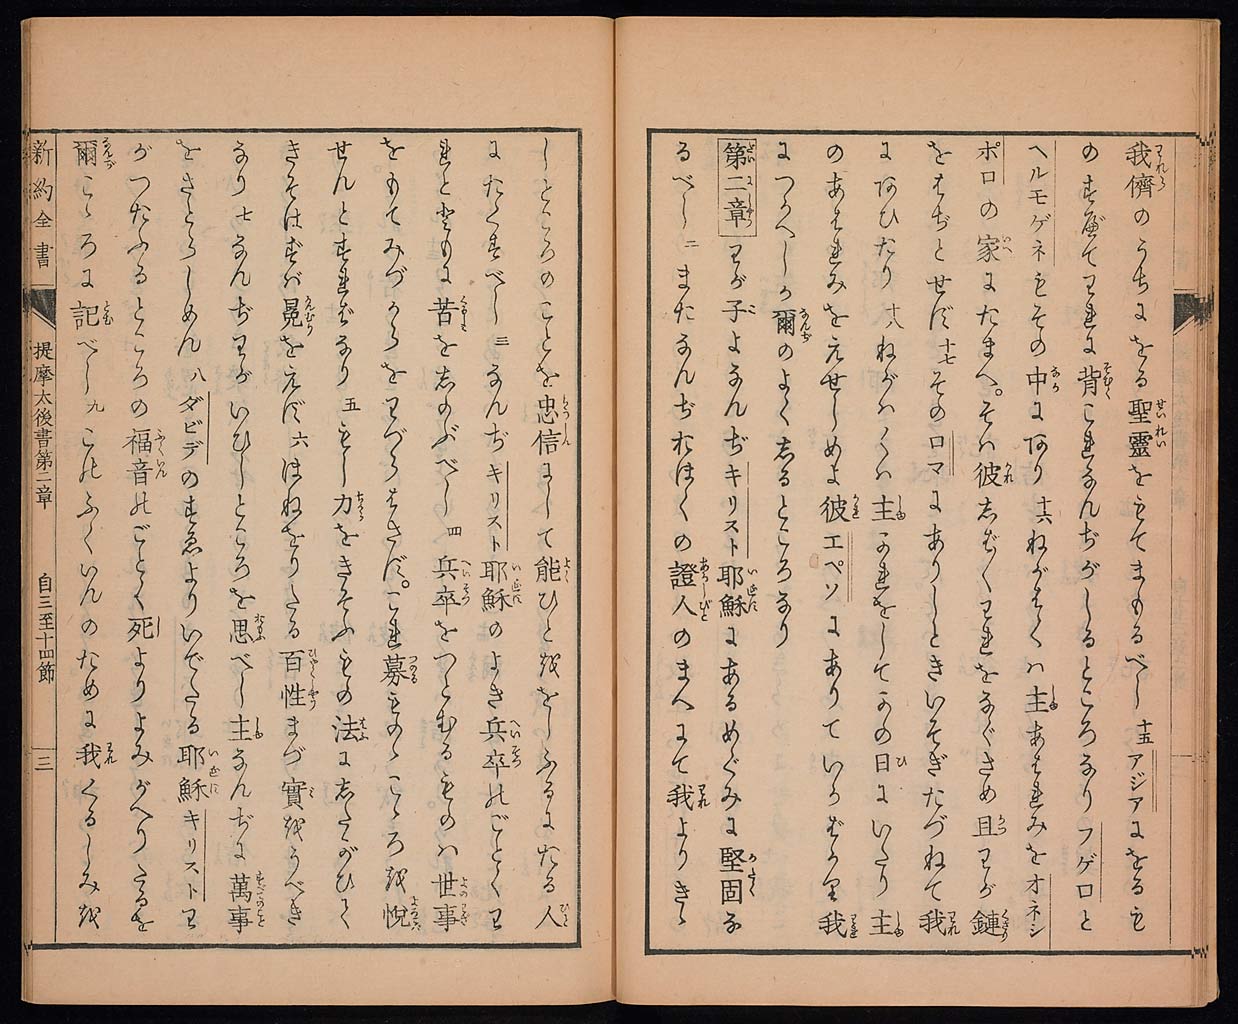 我儕のうちにをる聖靈をもてまもるべし 十五 アジアにをるも
のすべてわれに背これなんぢがしるところなりフゲロと
ヘルモゲネもその中にあり 十六 ねがはくハ主あはれみをオネシ
ポロの家にたまへ。そハ彼志ばしばわれをなぐさめ且わが鏈
をはぢとせず 十七 そのロマにありしときいそぎたづねて我
にあひたり 十八 ねがハくハ主かれをしてかの日にいたり主
のあはれみをえせしめよ彼エペソにありていかばかり我
につかへしか爾のよく志るところなり
第二章 わが子よなんぢキリスト耶穌にあるめぐみに堅固な
るべし 二 またなんぢおほくの證人のまへにて我よりきゝ
しところのことを忠信にして能ひとををしふるにたる人
にたくすべし 三 なんぢキリスト耶穌のよき兵卒のごとくわ
れとともに苦を志のぶべし 四 兵卒をつとむるものハ世事
をもてみづからをわづらはさず。これ募ものゝこゝろを悦
せんとすればなり 五 もし力をきそふもの法に志たがひて
きそはずバ冕をえず 六 ほねをりたる百性まづ實をうべき
なり 七 なんぢわがいひしところを思べし主なんぢに萬事
をさとらしめん 八 ダビデのすゑよりいでたる耶穌キリストわ
がつたふるところの福音のごとく死よりよみがへりたるを
爾こゝろに記べし 九 このふくいんのために我くるしみを
新約全書 提摩太後書第二章 自三至十四節 三